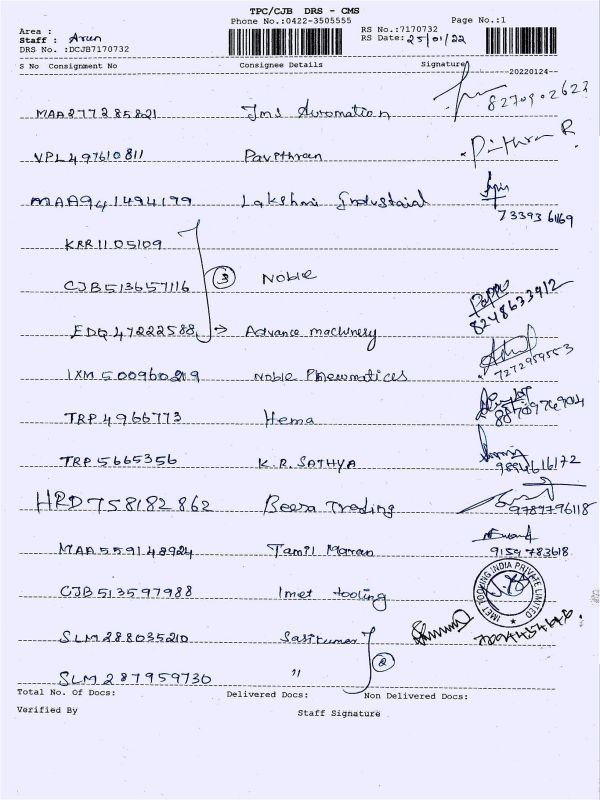 TPC/CJB DRS - CMS
Phone No.:0422-3505555 Page No.:1
Area : RS No.:7170732
Staff : Arun RS Date: 25/01/22
DRS No. :DCJB7170732
S No Consignment No Consignee Details Signature
20220124
MAA277285821 Jms Automation 8270902623
VPL497610811 Pavithran Pavithran R
MAA941494199 Lakshmi Industrial
7339361169
KRR1105109
CJB513657116 3 Noble
EDQ47222588 → Advance machinery 8248633912
IXM500960219 Noble Pneumatices 7272959553
TRP4966773 Hema
TRP5665356 K.R. SATHYA 9894616172
HRD758182862 Beera Trading 9787796118
MAA559148924 Tamil Maran 9159783618
CJB513597988 Imet tooling IMET TOOKING INDIA PRIVATE LIMITED
SLM288035210 Sasikumar
SLM287959730 " 2
Total No. Of Docs: Delivered Docs: Non Delivered Docs:
Verified By Staff Signature